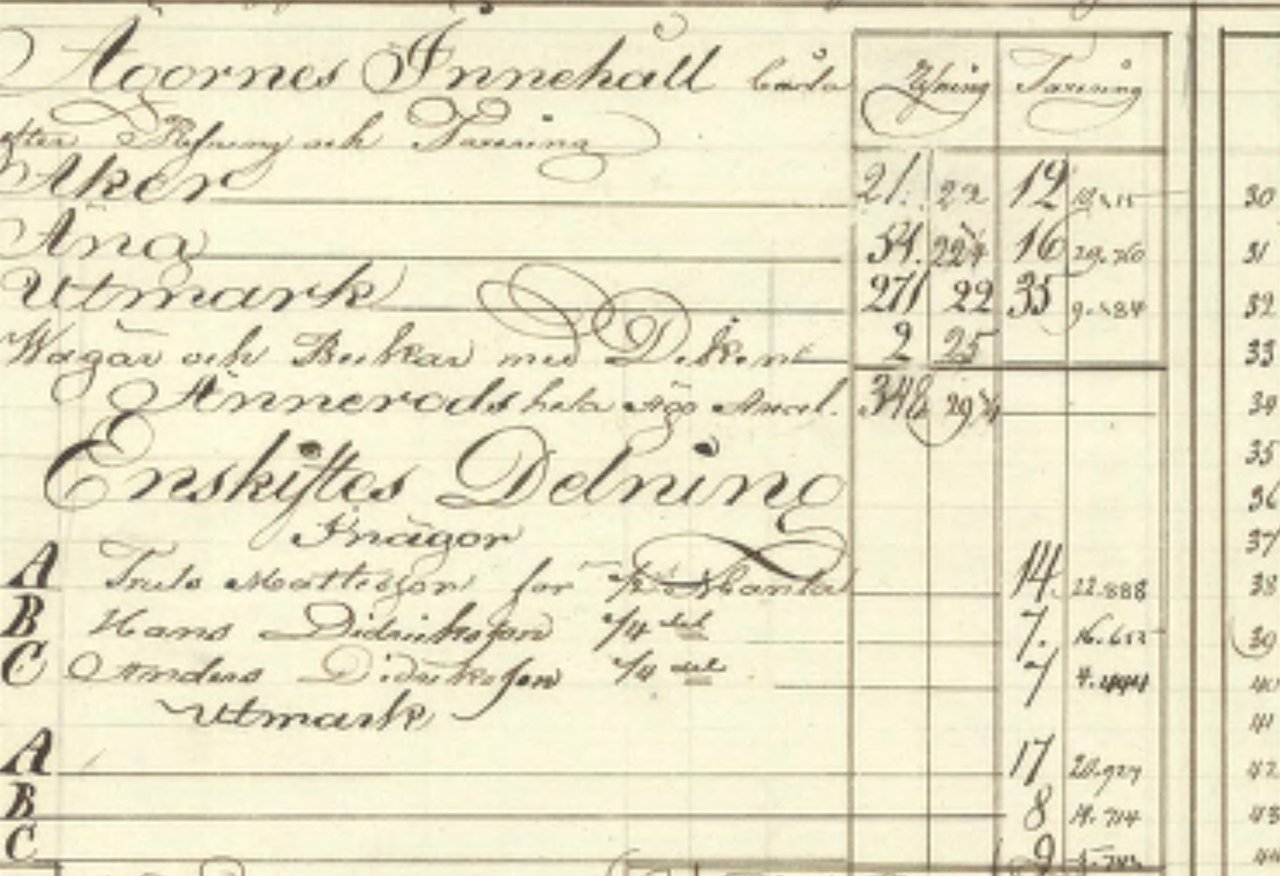 Ägornes Innehåll båda Ytning Taxering
efter Refning och Taxering
Åker 21. 22 12
Äng 51. 22¼ 16 29.760
Utmark 271 22 35 9.584
Wägar och Beckar med Diken 2 25
Annerods hela Ägo Areal. 348 29¼
Enskiftes Delning
Inägor
A Truls Mattesson för ½ Mantal 14. 22.888
B Hans Didriksson ¼ del 7. 16.612
C Anders Didriksson ¼ del 7 4.444
Utmark
A 17 20.927
B 8 14.714
C 9
30
31
32
33
34
35
36
37
38
39
40
41
42
43
44